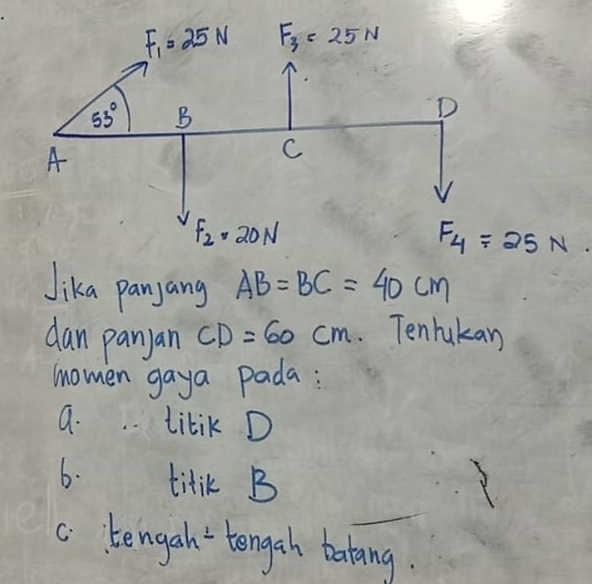 F₁ = 25 N F₃ = 25 N
53° B D
A C
F₂ = 20 N F₄ = 25 N.
Jika panjang AB = BC = 40 cm
dan panjan CD = 60 cm. Tentukan
momen gaya pada :
a. titik D
b. titik B
c. tengah-tengah batang.